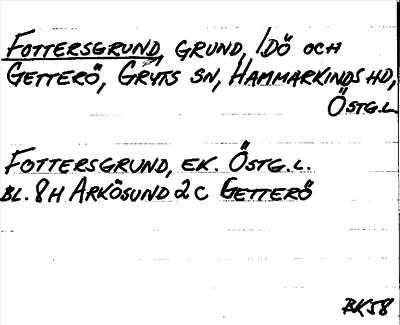 FOTTERSGRUND, GRUND, IDÖ OCH
GETTERÖ, GRYTS SN, HAMMARKINDS HD,
ÖSTG.L.
FOTTERSGRUND, EK. ÖSTG.L.
BL. 8H ARKÖSUND 2C GETTERÖ
BK58